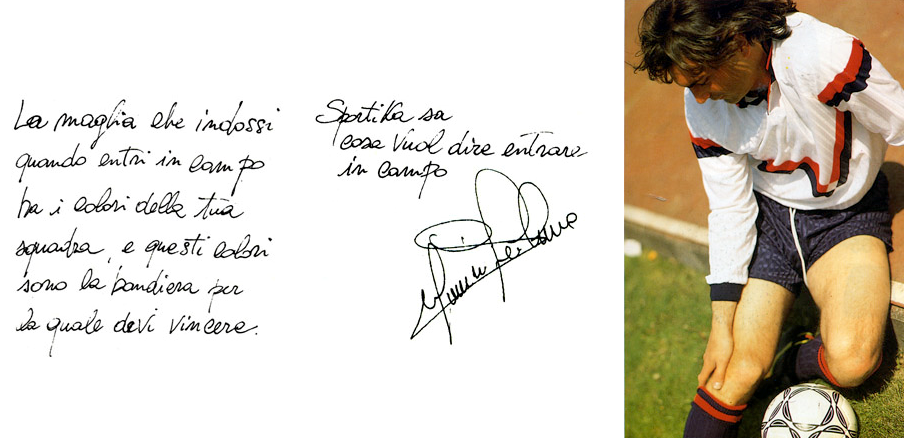 La maglia che indossi
quando entri in campo
ha i colori della tua
squadra, e questi colori
sono la bandiera per
la quale devi vincere.
Sportika sa
cosa vuol dire entrare
in campo